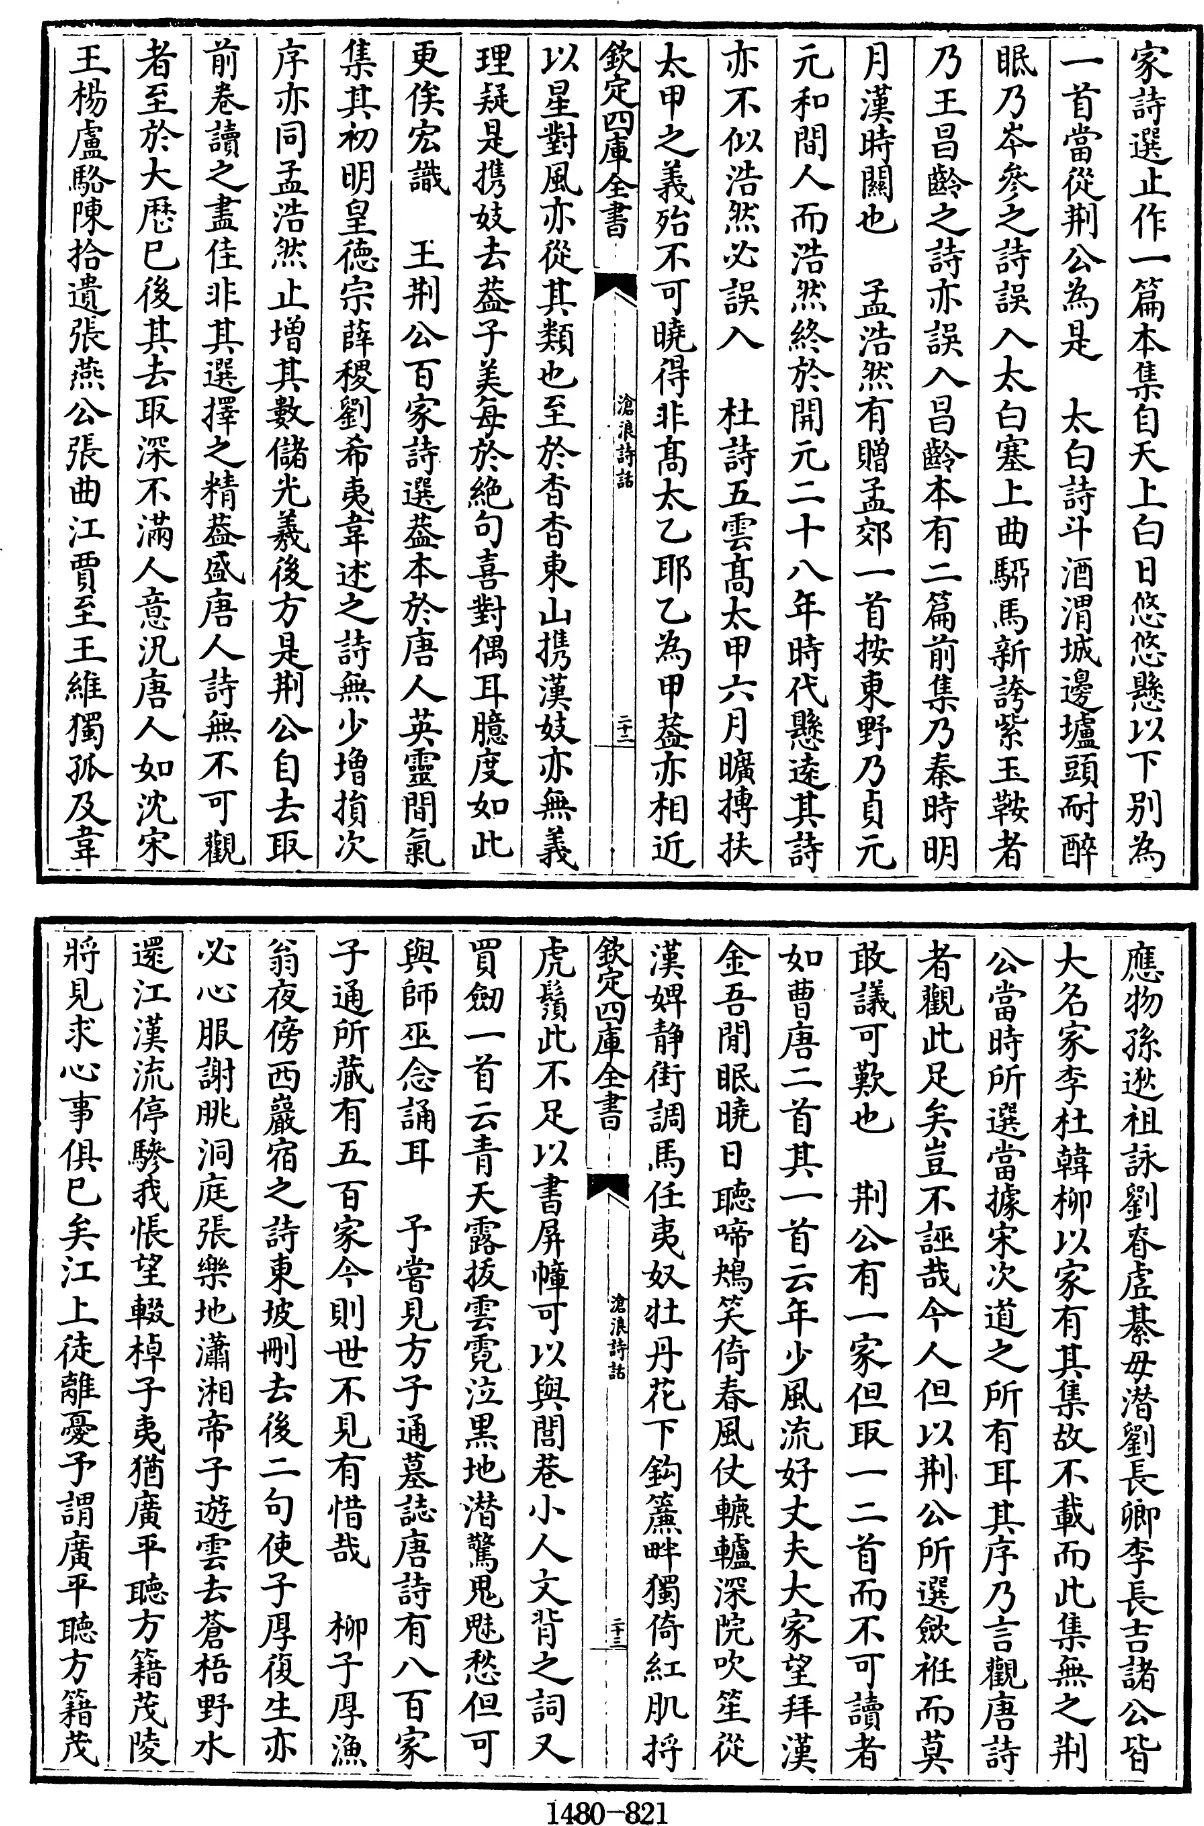 家詩選止作一篇本集自天上白日悠悠懸以下别為
一首當從荆公為是　太白詩斗酒渭城邊壚頭耐醉
眠乃岑參之詩誤入太白塞上曲騧馬新誇紫玉鞍者
乃王昌齡之詩亦誤入昌齡本有二篇前集乃秦時明
月漢時關也　孟浩然有贈孟郊一首按東野乃貞元
元和間人而浩然終於開元二十八年時代懸逺其詩
亦不似浩然必誤入　杜詩五雲髙太甲六月曠摶扶
太甲之義殆不可曉得非髙太乙耶乙為甲葢亦相近
欽定四庫全書
滄浪詩話
二十二
以星對風亦從其類也至於杳杳東山携漢妓亦無義
理疑是携妓去葢子美每於絶句喜對偶耳臆度如此
更俟宏識　王荆公百家詩選葢本於唐人英靈間氣
集其初明皇德宗薛稷劉希夷韋述之詩無少增損次
序亦同孟浩然止增其數儲光羲後方是荆公自去取
前卷讀之盡佳非其選擇之精葢盛唐人詩無不可觀
者至於大厯已後其去取深不滿人意況唐人如沈宋
王楊盧駱陳拾遺張燕公張曲江賈至王維獨孤及韋
應物孫逖祖詠劉眘虚綦毋潜劉長卿李長吉諸公皆
大名家李杜韓柳以家有其集故不載而此集無之荆
公當時所選當據宋次道之所有耳其序乃言觀唐詩
者觀此足矣豈不誣哉今人但以荆公所選歛袵而莫
敢議可歎也　荆公有一家但取一二首而不可讀者
如曹唐二首其一首云年少風流好丈夫大家望拜漢
金吾閒眠曉日聽啼鴂笑倚春風仗轆轤深院吹笙從
漢婢静街調馬任夷奴牡丹花下鈎簾畔獨倚紅肌捋
欽定四庫全書
滄浪詩話
二十三
虎鬚此不足以書屏幛可以與閭巷小人文背之詞又
買劒一首云青天露拔雲霓泣黒地潜驚鬼魅愁但可
與師巫念誦耳　予嘗見方子通墓誌唐詩有八百家
子通所藏有五百家今則世不見有惜哉　柳子厚漁
翁夜傍西巖宿之詩東坡刪去後二句使子厚復生亦
必心服謝朓洞庭張樂地瀟湘帝子遊雲去蒼梧野水
還江漢流停驂我悵望輟棹子夷猶廣平聽方籍茂陵
將見求心事俱已矣江上徒離憂予謂廣平聽方籍茂
1480—821